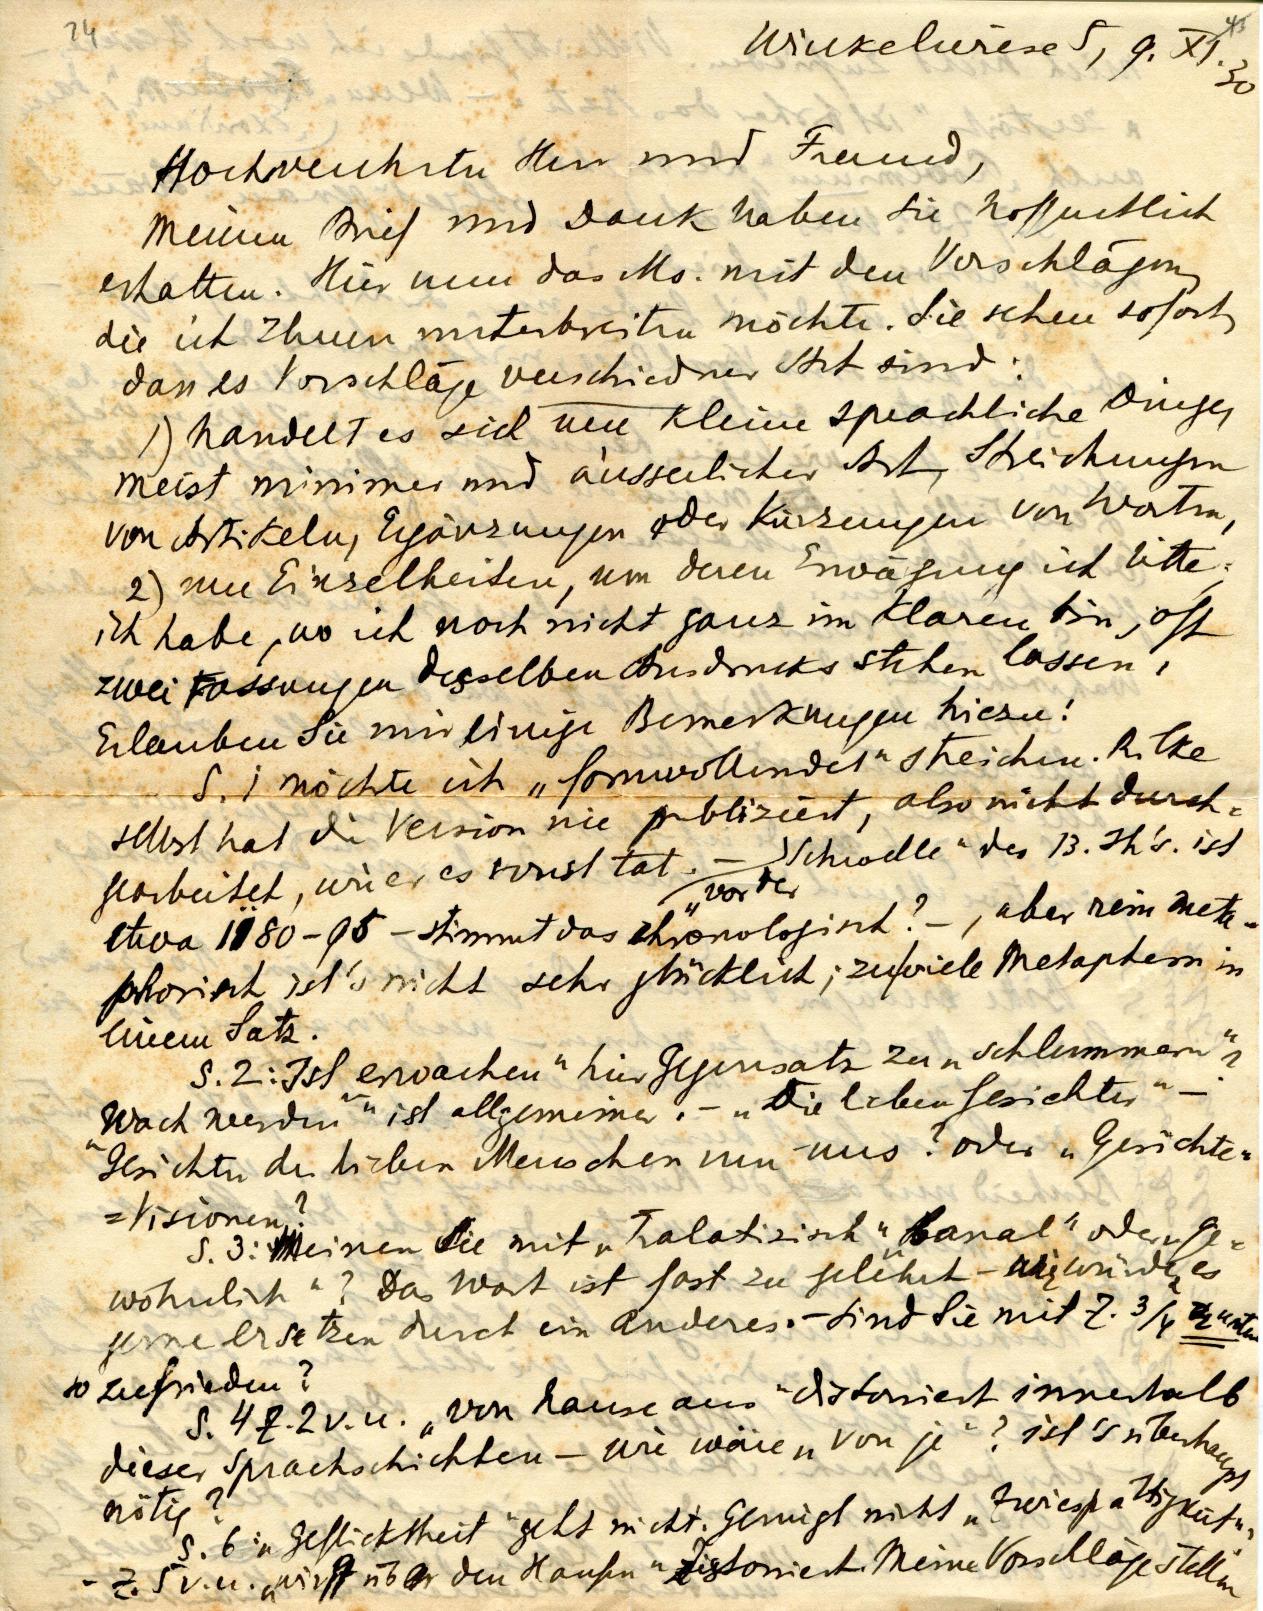 74
Winkelwiese 5, 9. XI. 30
Hochverehrter Herr und Freund,
Meinen Brief und Dank haben Sie hoffentlich
erhalten. Hier nun das Ms. mit den Vorschlägen,
die ich Ihnen unterbreiten möchte. Sie sehen sofort,
dass es Vorschläge verschiedner Art sind:
1) handelt es sich um kleine sprachliche Dinge,
meist minimer und äusserlicher Art, Streichungen
von Artikeln, Ergänzungen oder Kürzungen von Worten,
2) um Einzelheiten, um deren Erwägung ich bitte;
ich habe, wo ich noch nicht ganz im Klaren bin, oft
zwei Fassungen desselben Ausdrucks stehen lassen.
Erlauben Sie mir einige Bemerkungen hiezu!
S. 1 möchte ich „formvollendet" streichen. Rilke
selbst hat die Version nie publiziert, also nicht durch=
gearbeitet, wie er es sonst tat. – „vor der Schwelle" des 13. Jh's. ist
etwa 1180–95 – stimmt das chronologisch? –, aber rein meta=
phorisch ist's nicht sehr glücklich; zuviele Metaphern in
einem Satz.
S. 2: Ist „erwachen" hier Gegensatz zu „schlummern"?
„Wach werden" ist allgemeiner. – „Die lieben Gesichter" –
Gesichter der lieben Menschen um uns? oder „Gesichte"
= Visionen?
S. 3: Meinen Sie mit „Tralatizisch" „banal" oder „ge=
wöhnlich"? Das Wort ist fast zu gelehrt – würde es
gerne ersetzen durch ein anderes. – Sind Sie mit Z. 3/4 v. unten
so zufrieden?
S. 4 Z. 2 v. u. „von hause aus" distoniert innerhalb
dieser Sprachschichten – wie wäre „von je"? ist's überhaupt
nötig?
S. 6: „Geflicktheit" geht nicht. Genügt nicht „Zwiespältigkeit"?
– Z. 5 v. u. „wirft über den Haufen" distoniert. Meine Vorschläge stellen